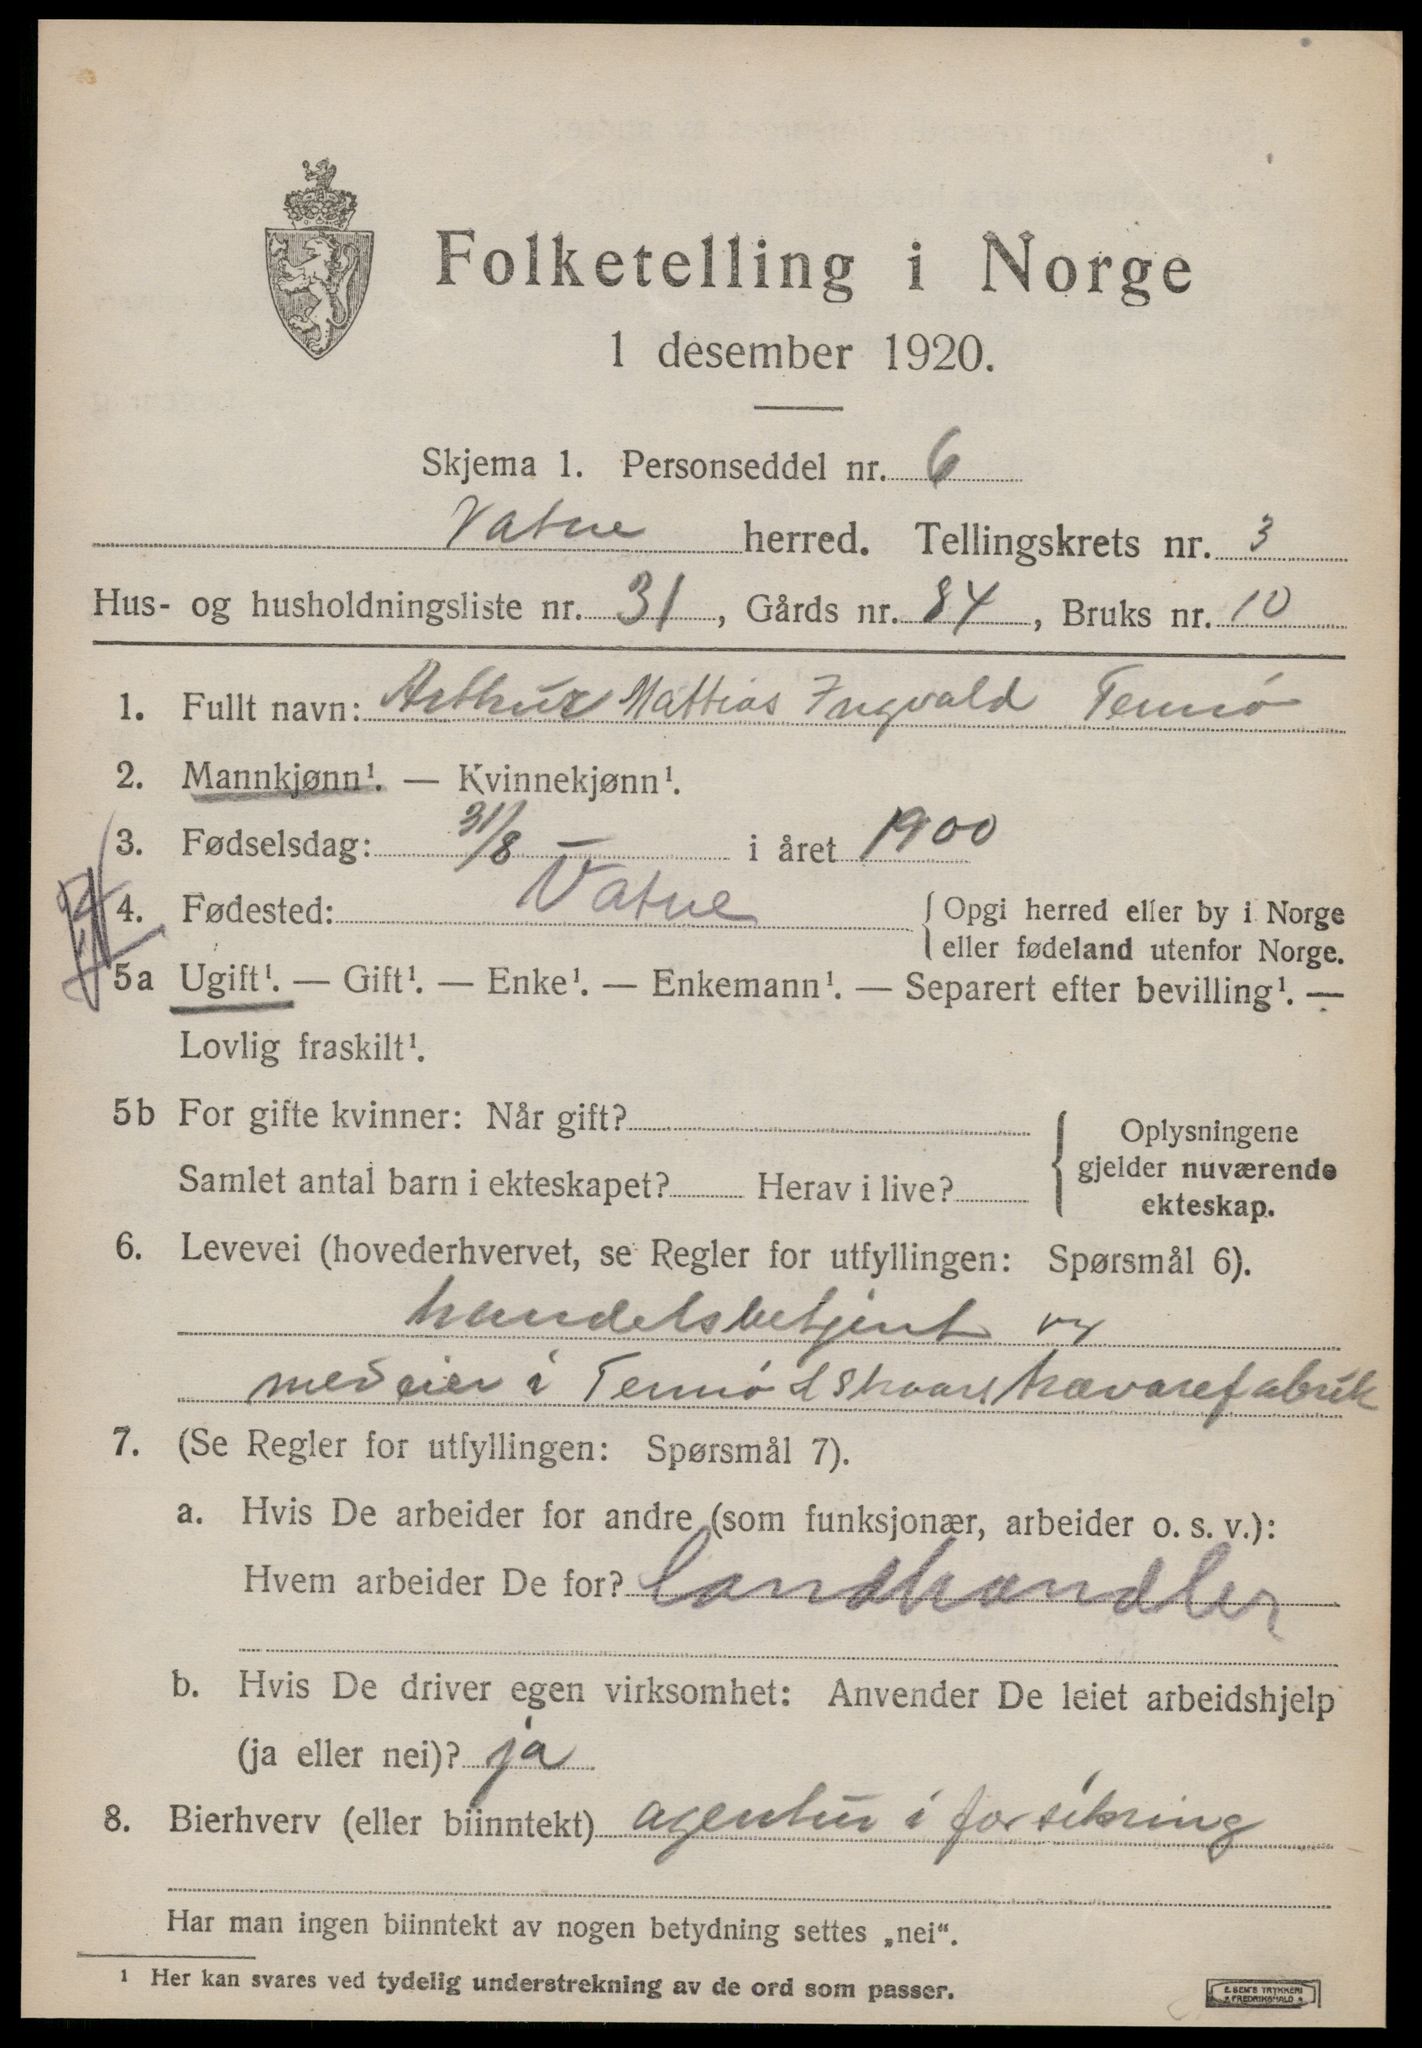 Folketelling i Norge
1 desember 1920.
Skjema 1. Personseddel nr. 6
Vatne herred. Tellingskrets nr. 3
Hus- og husholdningsliste nr. 31, Gårds nr. 84, Bruks nr. 10
1. Fullt navn: Arthur Mattias Ingvald Tennø
2. Mannkjønn¹. — Kvinnekjønn¹.
3. Fødselsdag: 31/8 i året 1900
4. Fødested: Vatne { Opgi herred eller by i Norge
eller fødeland utenfor Norge.
5a Ugift¹. — Gift¹. — Enke¹. — Enkemann¹. — Separert efter bevilling¹. —
Lovlig fraskilt¹.
5b For gifte kvinner: Når gift?
Samlet antal barn i ekteskapet? Herav i live?
{ Oplysningene
gjelder nuværende
ekteskap.
6. Levevei (hovederhvervet, se Regler for utfyllingen: Spørsmål 6).
handelsbetjent
medeier i Tennø & Skaars trævarefabrik
7. (Se Regler for utfyllingen: Spørsmål 7).
a. Hvis De arbeider for andre (som funksjonær, arbeider o. s. v.):
Hvem arbeider De for? landhandler
b. Hvis De driver egen virksomhet: Anvender De leiet arbeidshjelp
(ja eller nei)? ja
8. Bierhverv (eller biinntekt) agentur i forsikring
Har man ingen biinntekt av nogen betydning settes „nei“.
¹ Her kan svares ved tydelig understrekning av de ord som passer.
E. SEM'S TRYKKERI
FREDRIKSHALD